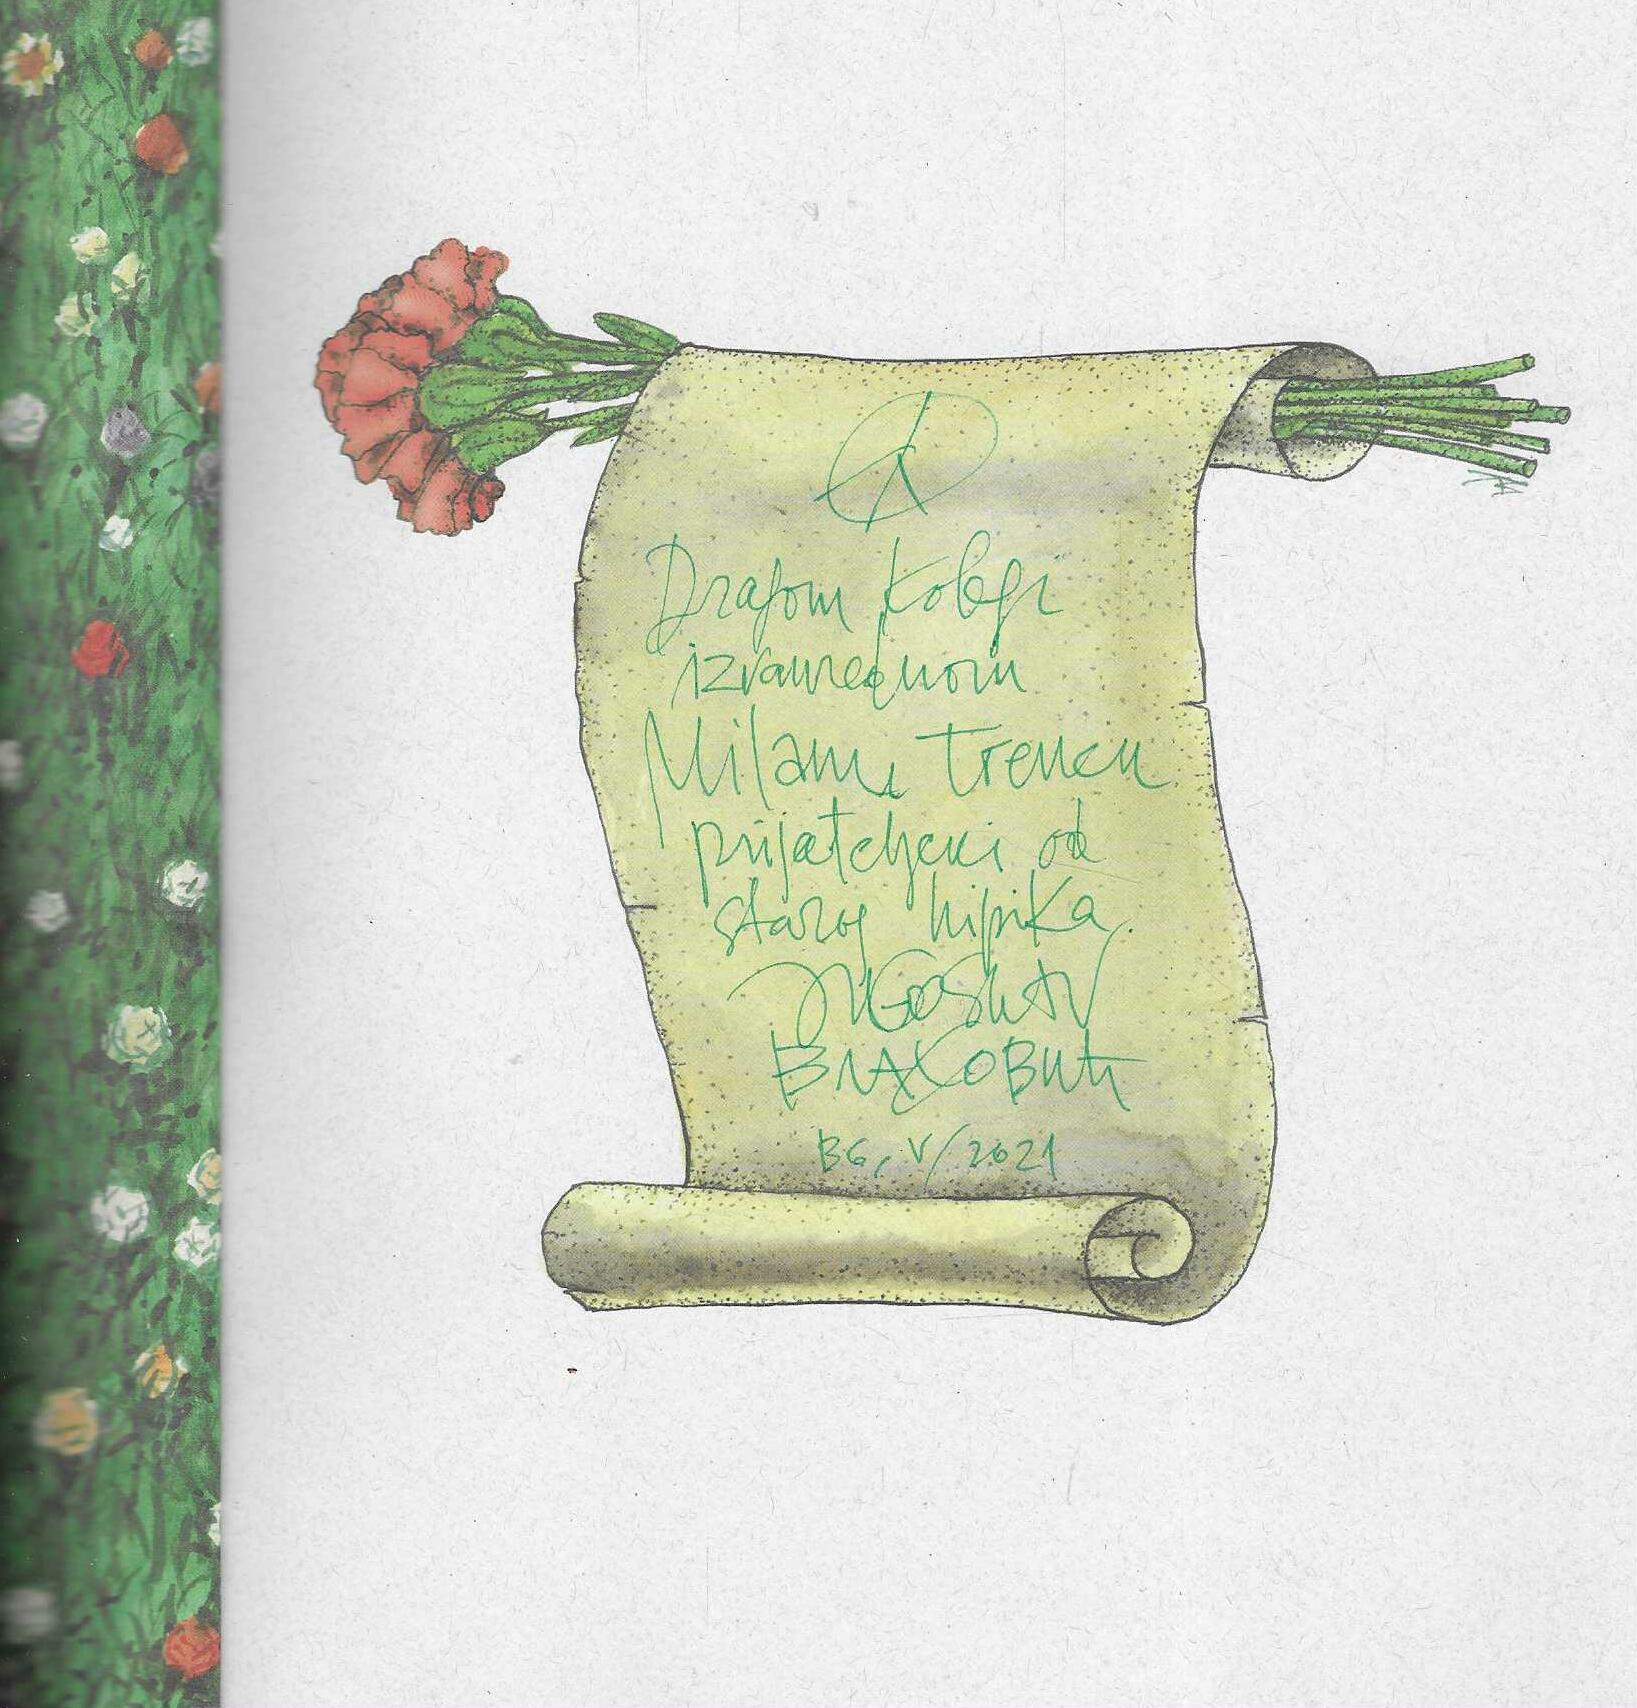 Dragom kolegi
izvanrednom
Milanu Trencu
prijateljski od
starog hipika,
JUGOSLAV
ВЛАХОВИЋ
BG, V/2021